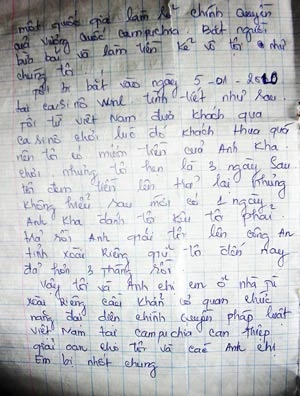 một quốc gia làm lơ chính quyền
của vương quốc campuchia Bắt người
bừa bãi và làm tiền kẻ vô tội như
chúng tôi
tôi bị bắt vào ngày 5-01-2010
tại casinô tình tiết như sau
tôi từ việt Nam đưa khách qua
casinô chơi lúc đó khách thua quá
nên tôi có mượn tiền của Anh Kha
chơi nhưng tôi hẹn là 3 ngày Sau
tôi đem tiền lên trả lại nhưng
không hiểu sau mới có 1 ngày
Anh Kha đánh tôi kêu tôi phải
trả rồi Anh giải tôi lên công An
tỉnh xoài Riêng giữ tôi đến nay
đã hơn 3 tháng rồi
Vậy tôi và Anh chị em ở nhà tù
xoài Riêng cầu khẩn cơ quan chức
năng đại diên chính quyền pháp luật
việt Nam tại campuchia can thiệp
giải oan cho tôi và các Anh chị
Em bị nhốt chung